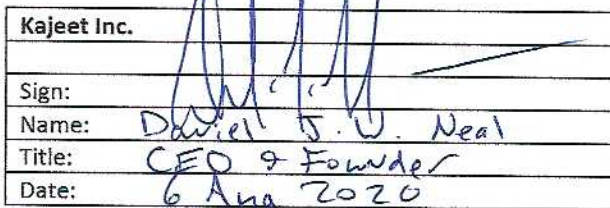 Kajeet Inc.
Sign:
Name: Daniel J. W. Neal
Title: CEO & Founder
Date: 6 Aug 2020